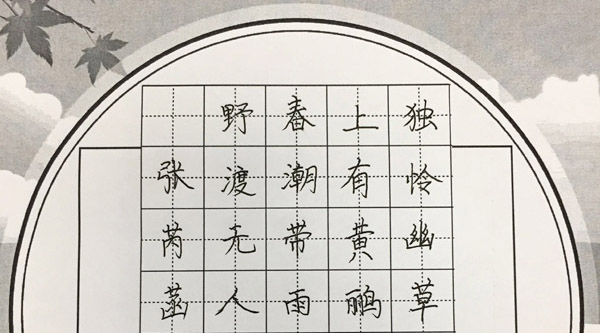 独怜幽草
上有黄鹂
春潮带雨
野渡无人
张芮菡